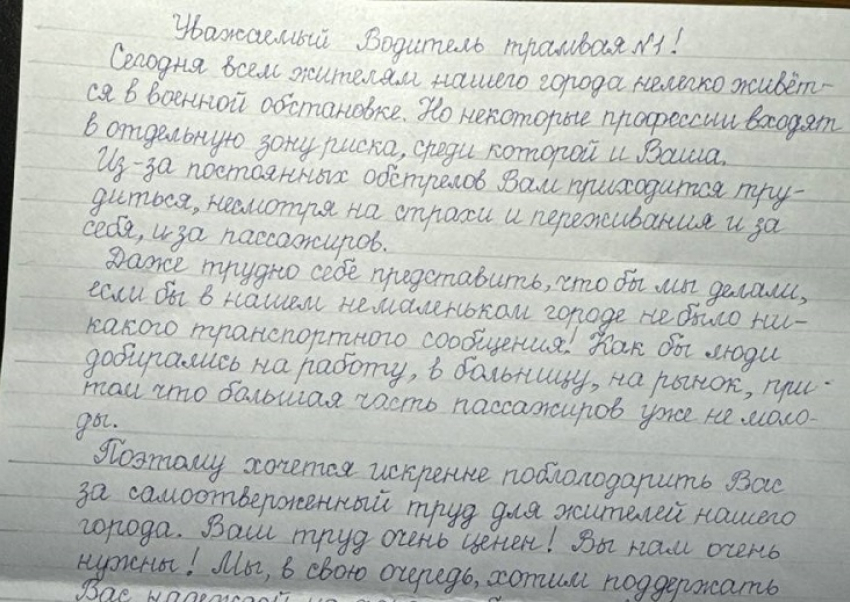 Уважаемый Водитель трамвая №1!
Сегодня всем жителям нашего города нелегко живёт-
ся в военной обстановке. Но некоторые профессии входят
в отдельную зону риска, среди которой и Ваша.
Из-за постоянных обстрелов Вам приходится тру-
диться, несмотря на страхи и переживания и за
себя, и за пассажиров.
Даже трудно себе представить, что бы мы делали,
если бы в нашем немаленьком городе не было ни-
какого транспортного сообщения! Как бы люди
добирались на работу, в больницу, на рынок, при-
том что большая часть пассажиров уже не моло-
ды.
Поэтому хочется искренне поблолодарить Вас
за самоотверженный труд для жителей нашего
города. Ваш труд очень ценен! Вы нам очень
нужны! Мы, в свою очередь, хотим поддержать
Вас надеждой